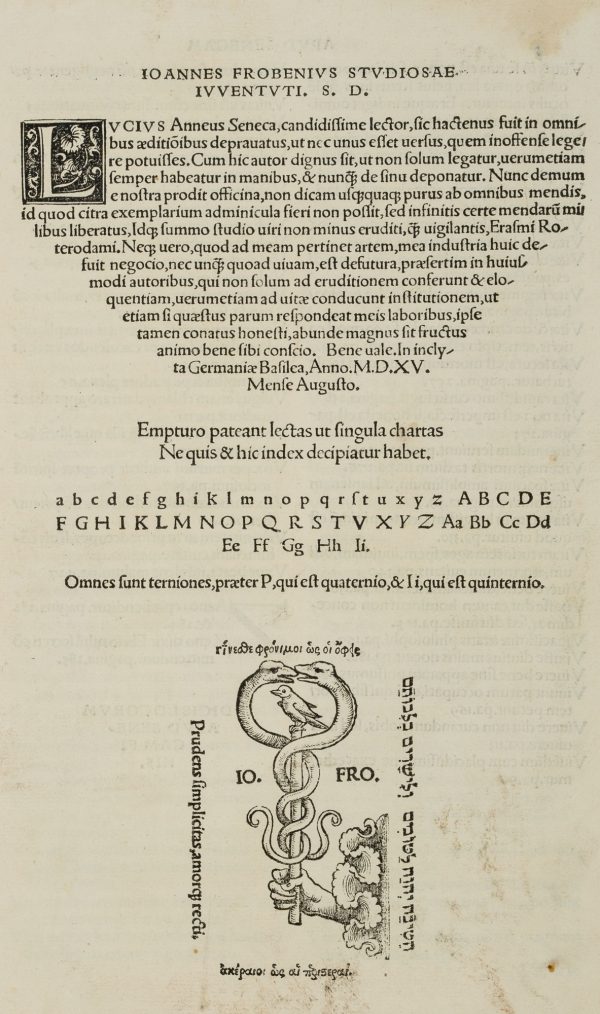 IOANNES FROBENIVS STVDIOSAE
IVVENTVTI. S. D.
LVCIVS Anneus Seneca,candidissime lector,sic hactenus fuit in omni-
bus æditiõibus deprauatus,ut nec unus esset uersus,quem inoffense lege
re potuisses. Cum hic autor dignus sit,ut non solum legatur,uerumetiam
semper habeatur in manibus,& nunq̃ de sinu deponatur. Nunc demum
e nostra prodit officina,non dicam usq̃quaq; purus ab omnibus mendis,
id quod citra exemplarium adminicula fieri non possit,sed infinitis certe mendarũ mil
libus liberatus,Idq; summo studio uiri non minus eruditi,q̃ uigilantis,Erasmi Ro-
terodami. Neq; uero,quod ad meam pertinet artem,mea industria huic de-
fuit negocio,nec unq̃ quoad uiuam,est defutura,præsertim in huius
modi autoribus,qui non solum ad eruditionem conferunt & elo-
quentiam,uerumetiam ad uitæ conducunt institutionem,ut
etiam si quæstus parum respondeat meis laboribus,ipse
tamen conatus honesti,abunde magnus sit fructus
animo bene sibi conscio. Bene uale.In incly-
ta Germaniæ Basilea,Anno.M.D.XV.
Mense Augusto.
Empturo pateant lectas ut singula chartas
Ne quis & hic index decipiatur habet.
a b c d e f g h i k l m n o p q r s t u x y z A B C D E
F G H I K L M N O P Q R S T V X Y Z Aa Bb Cc Dd
Ee Ff Gg Hh Ii.
Omnes sunt terniones,præter P,qui est quaternio,& Ii,qui est quinternio.
γίνεσθε φρόνιμοι ὡς οἱ ὄφεις
Prudens simplicitas,amorq; recti.
IO. FRO.
יהוה לטובים ולישרים בלבותם
ἀκέραιοι ὡς αἱ περιστεραί.